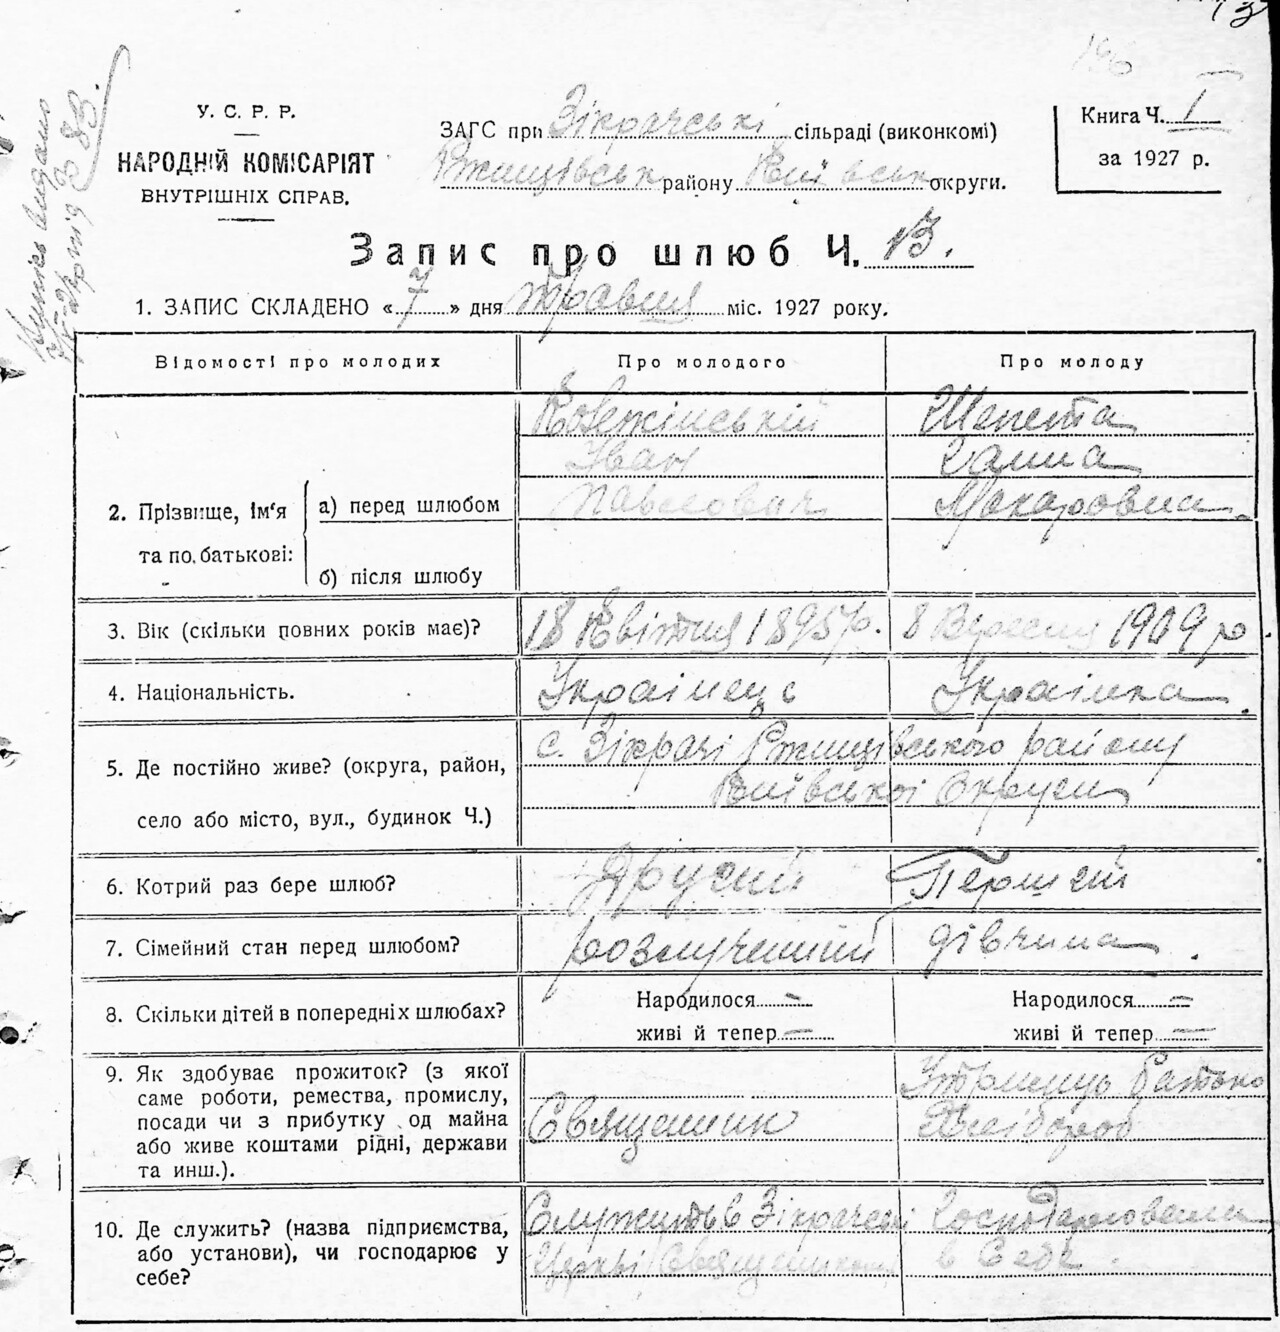 13
196
У. С. Р. Р.
НАРОДНІЙ КОМІСАРІЯТ
ВНУТРІШНІХ СПРАВ.
ЗАГС при Зікрачські сільраді (виконкомі)
Ржищівськ району Київськ округи.
Книга Ч. I
за 1927 р.
Запис про шлюб Ч. 13.
1. ЗАПИС СКЛАДЕНО « 7 » дня Травня міс. 1927 року.
Відомості про молодих
Про молодого
Про молоду
2. Прізвище, ім'я та по. батькові:
а) перед шлюбом
б) після шлюбу
Іван
Павлович
Шепета
Галина
Макаровна
3. Вік (скільки повних років має)?
18 Квітня 1895 р.
8 Вересня 1909 р
4. Національність.
Українець
Українка
5. Де постійно живе? (округа, район,
село або місто, вул., будинок Ч.)
с. Зікрачі Ржищівського району
Київської Округи
6. Котрий раз бере шлюб?
Другий
Перший
7. Сімейний стан перед шлюбом?
розлучений
дівчина.
8. Скільки дітей в попередніх шлюбах?
Народилося –
живі й тепер –
Народилося =
живі й тепер =
9. Як здобуває прожиток? (з якої
саме роботи, ремества, промислу,
посади чи з прибутку од майна
або живе коштами рідні, держави
та инш.).
Священник
Батько
Хлібороб
10. Де служить? (назва підприємства,
або установи), чи господарює у
себе?
Служить в Зікрачскі
Церкві Священиком
в Себе